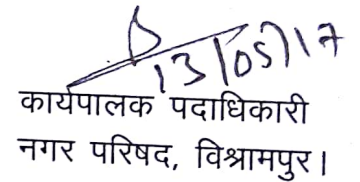 13/05/17
कार्यपालक पदाधिकारी
नगर परिषद, विश्रामपुर।